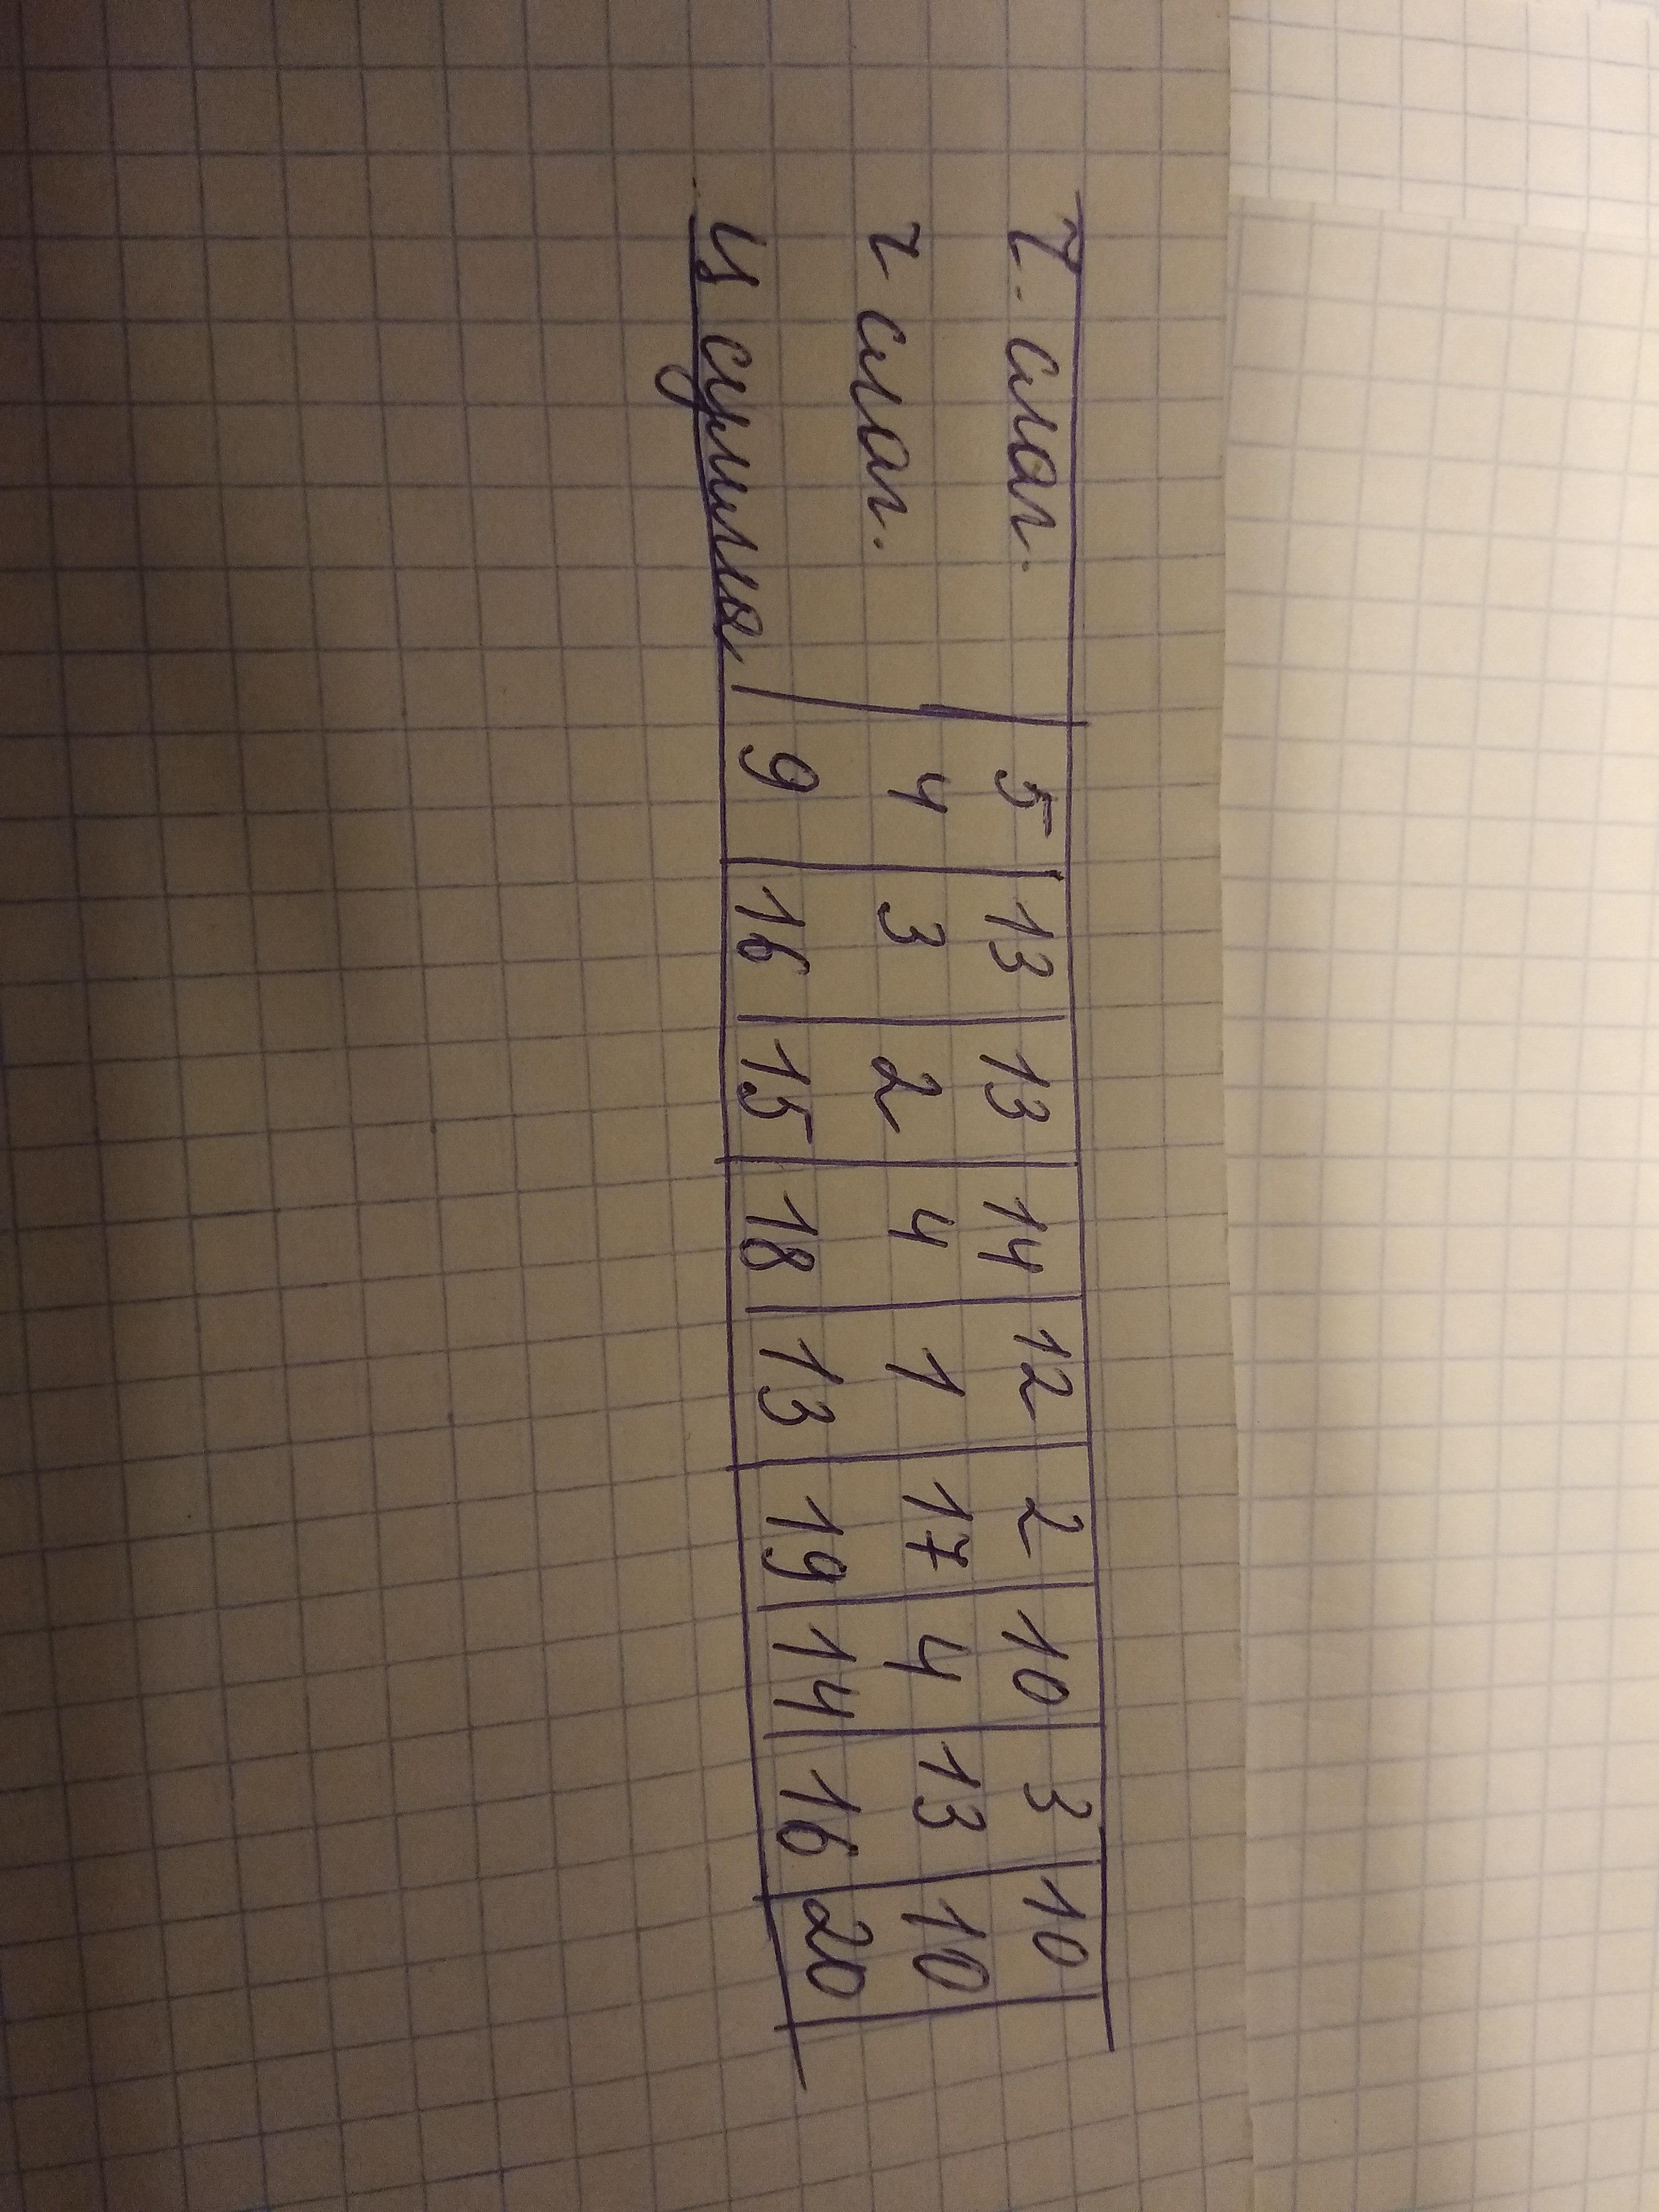 1. слаг. 5 13 13 14 12 2 10 3 10
2 слаг. 4 3 2 4 1 17 4 13 10
из суммы 9 16 15 18 13 19 14 16 20